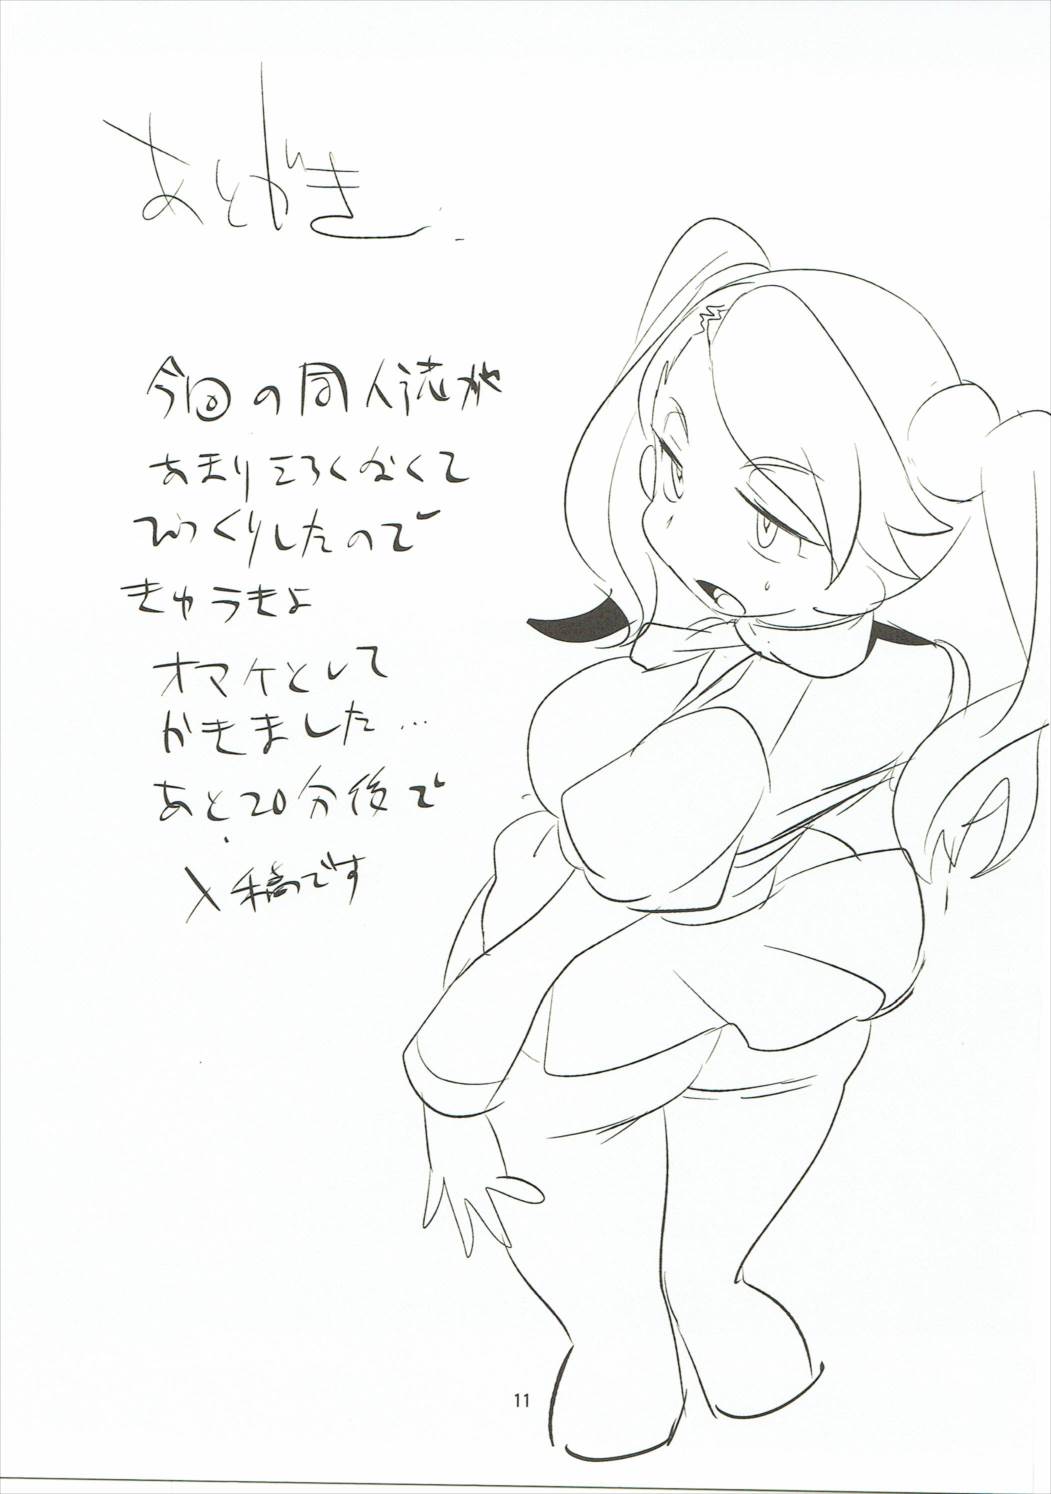 あとがき
今回の同人誌が
あまりエろくなくて
びっくりしたので
きゅうきょ
オマケとして
かきました…
あと20分後で
〆稿です
11